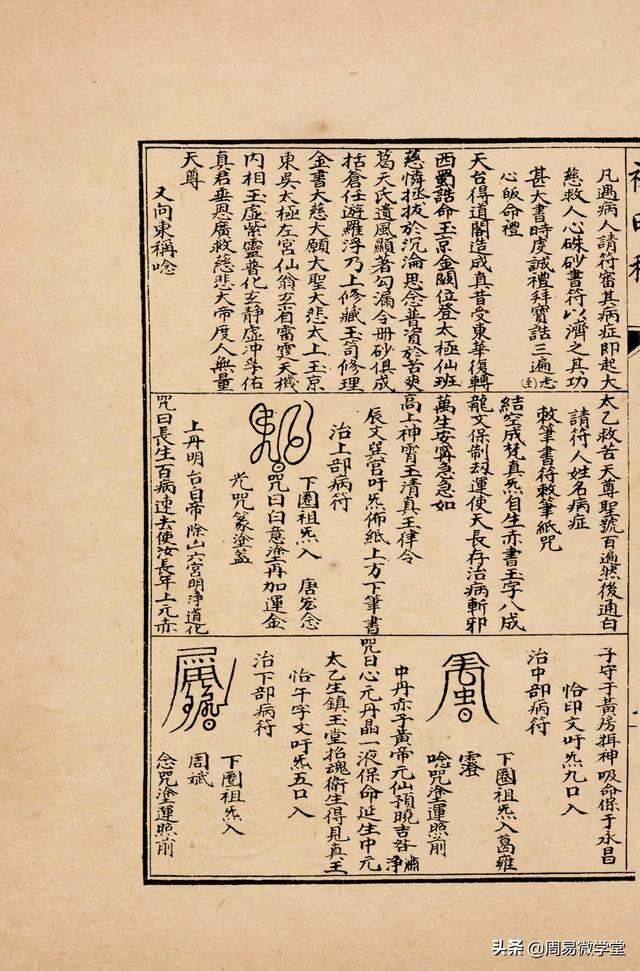 凡遇病人請符審其病症即起大
慈救人心硃砂書符以濟之其功
甚大書時虔誠禮拜寶誥三遍志
心皈命禮
天台得道閣造成真昔受東華復轉
西蜀誥命玉京金闕位登太極仙班
慈憐拯拔於沉淪思念普資於苦爽
葛天氏遺風顯著勾漏令丹砂俱成
括倉任遊羅浮乃上修藏玉笥修理
金書大慈大願大聖大悲太上玉京
東吳太極左宮仙翁玄省雷霆天機
內相玉虛紫靈普化玄靜虛沖孚佑
真君垂恩廣救慈悲大帝度人無量
天尊
又向東稱唸
太乙救苦天尊聖號百遍然後通白
請符人姓名病症
敕筆書符敕筆紙咒
結空成梵真炁自生赤書玉字八成
龍文保制劫運使天長存治病斬邪
萬生安寧急急如
高上神霄玉清真王律令
辰文巽宮吁炁佈紙上方下筆書
治上部病符
下圈祖炁入 唐宏念
咒曰白意塗丹加運金
光咒篆塗蓋
上丹明台自帝除山六宮明淨道化
咒曰長生百病速去使汝長年上元赤
子守于黃房揖神吸命保于永昌
恰印文吁炁九口入
治中部病符
下圈祖炁入葛雍
唸咒塗運照前
中丹赤子黃帝元仙預曉吉咎
咒曰心元丹晶一液保命延生中元
太乙生鎮玉堂招魂衛生得見真王
恰午字文吁炁五口入
治下部病符
下圈祖炁入
周斌
念咒塗運照前
头条 @周易微学堂